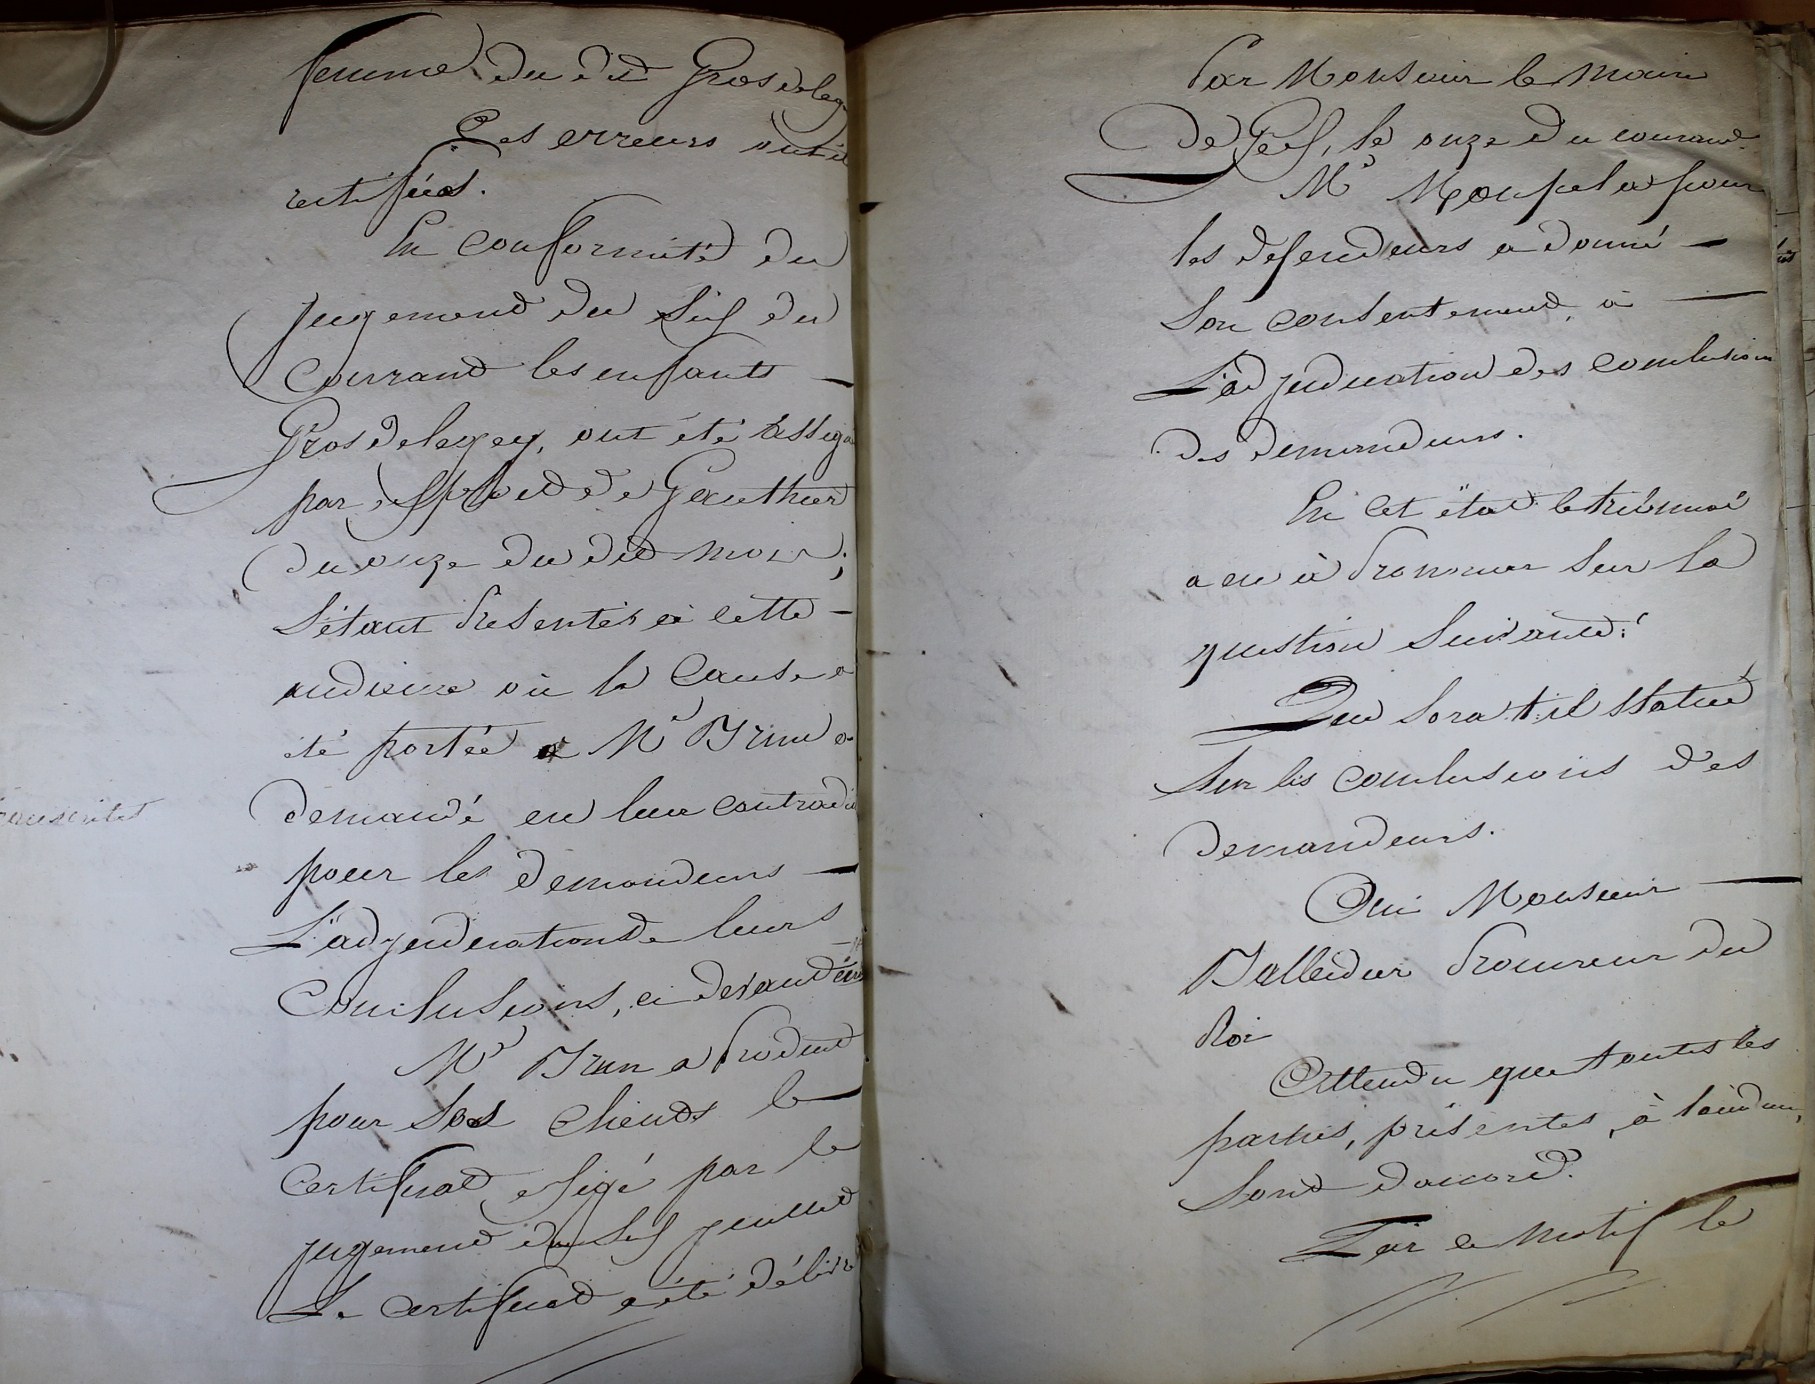 femme du dit Grosdelege
Ces erreurs ont été
rectifiées.
En conformité du
jugement du six du
Courrant les enfants
Grosdelegey, ont été assigné
par exploit de Gauthier
du onze du dit mois;
S'étant Présentés à cette
audience où la Cause a
été portée Me Brun a
demandé en leur contradic
pour les demandeurs
L'adjudication de leurs
Conclusions, ci devant
Me Brun a Produit
pour Ses Clients le
Certificat, exigé par le
jugement du Six juillet
Le Certificat a été délivré
Par Monsieur le Maire
de Gex, le onze du courant.
Me pour
les défendeurs a donné
Son consentement, à
L'adjudication des conclusions
des demandeurs.
En cet état le tribunal
a eu à Prononcer Sur la
question Suivante:
Que Sera t'il Statué
Sur les conclusions des
demandeurs.
Oui Monsieur
Procureur du
Roi
Attendu que toutes les
parties, présentes, à
Sont d'accord.
Par ce Motif le